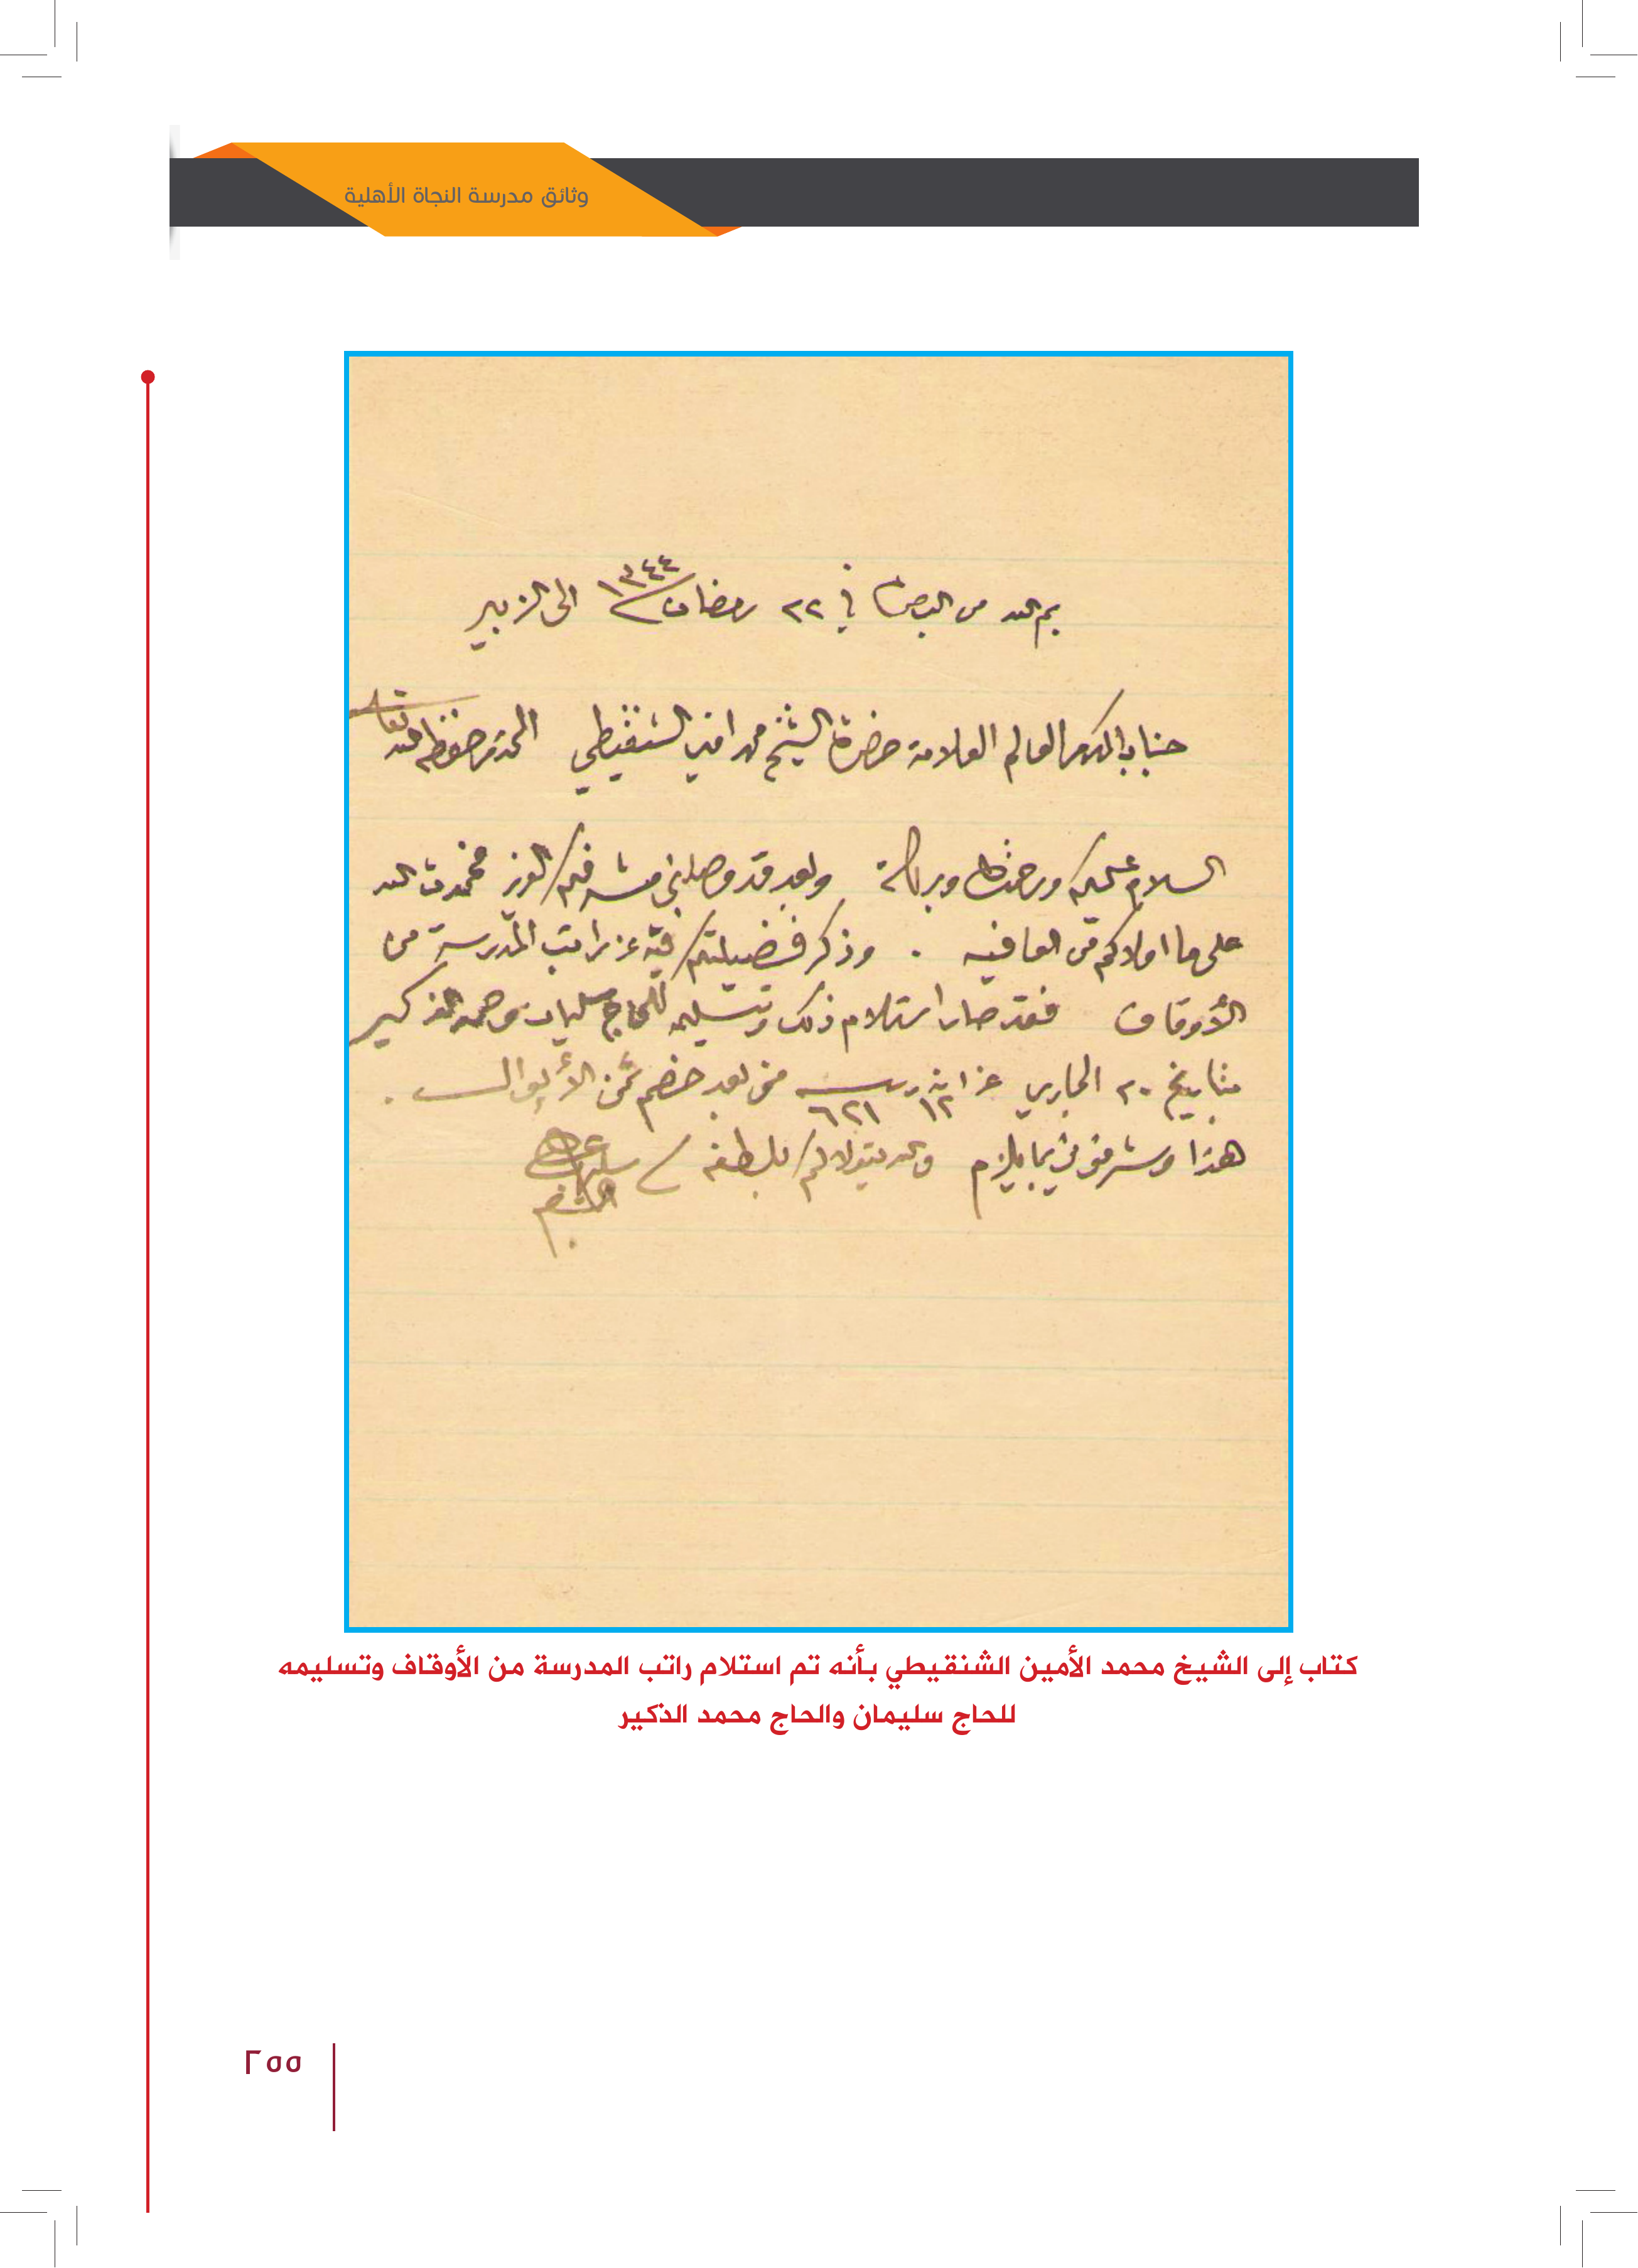 وثائق مدرسة النجاة الأهلية
بسم الله من البصرة في ٢٢ رمضان ١٣٤٤ الى الزبير
جناب المكرم العالم العلامة حضرة الشيخ محمد امين الشنقيطي المحترم حفظه الله تعالى
السلام عليكم ورحمة الله وبركاته وبعد قد وصلني مشرفكم العزيز فحمدت الله
على ما اولاكم من العافيه . وذكر فضيلتكم فيه عن راتب المدرسة من
الأوقاف فقد صار استلام ذلك وتسليمه للحاج سليمان ومحمد الذكير
بتاريخ ٢٠ الجاري عن ١٢ ٦٢١ من بعد خصم ثمن
هذا وشرفوني بما يلزم والله يتولاكم بلطفه
كتاب إلى الشيخ محمد الأمين الشنقيطي بأنه تم استلام راتب المدرسة من الأوقاف وتسليمه
للحاج سليمان والحاج محمد الذكير
٢٥٥